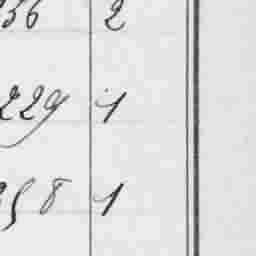 36 2
229 1
58 1